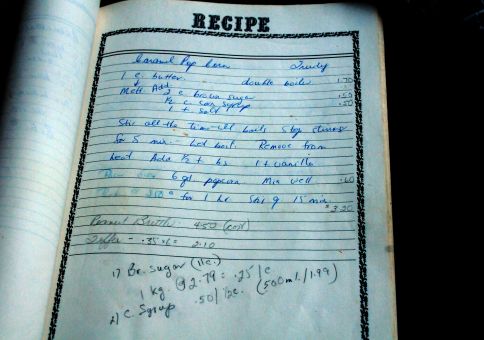 RECIPE
Caramel Pop Corn Trudy
1 c. butter double boiler 1.70
Melt Add 2 c brown sugar .50
½ c corn syrup .50
1 t salt
Stir all the time till boils Stop stirring
for 5 min - Let boil. Remove from
heat Add ½ t bs 1 t vanilla
6 qt. popcorn Mix well .60
250° for 1 hr Stir q 15 min
$3.20
Peanut Brittle 4.50 (cost)
.35x6 = 2.10
1) Br. Sugar (11c.)
1 kg. @ 2.79 = .25/c
2) C. Syrup .50/½c. (500ml./1.99)